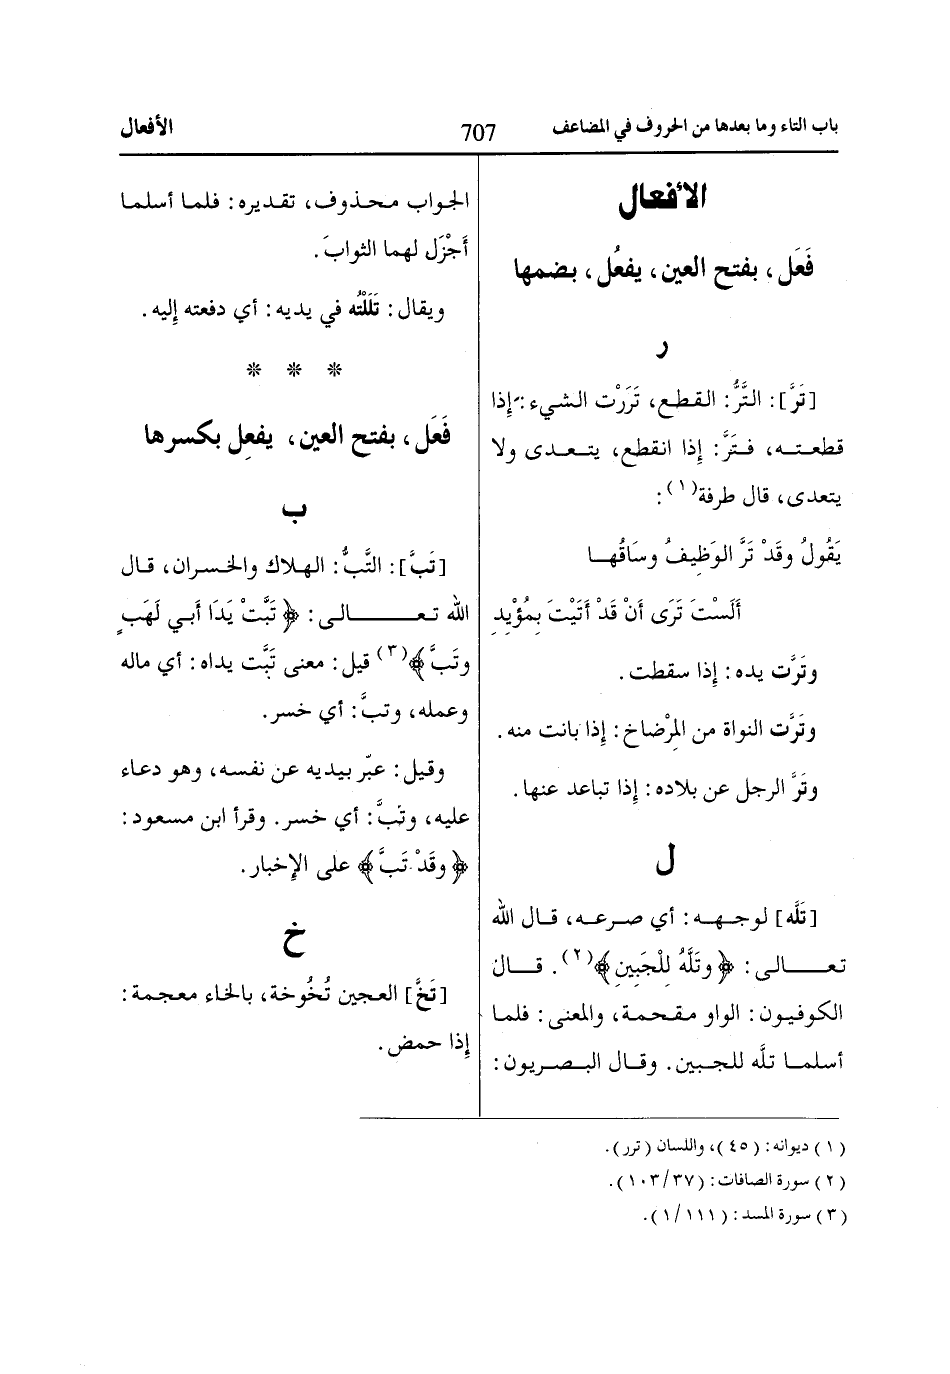 باب التاء وما بعدها من الحروف في المضاعف
707
الأفعال
الأفعال
فَعَل، بفتح العين، يفعُل، بضمها
ر
[تَرَّ]: التَّرُّ: القطع، تَرَرْت الشيء: إذا
قطعته، فتَرَّ: إذا انقطع، يتعدى ولا
يتعدى، قال طرفة(١):
يَقُولُ وقَدْ تَرَّ الوَظِيفُ وسَاقُها
أَلَسْتَ تَرَى أَنْ قَدْ أَتَيْتَ بِمُؤْيِدِ
وتَرَّت يده: إذا سقطت.
وتَرَّت النواة من المِرْضاخ: إذا بانت منه.
وتَرَّ الرجل عن بلاده: إذا تباعد عنها.
ل
[تَلَّه] لوجهه: أي صرعه، قال الله
تعالى: ﴿وتَلَّهُ لِلْجَبِينِ﴾(٢). قال
الكوفيون: الواو مقحمة، والمعنى: فلما
أسلما تلَّه للجبين. وقال البصريون:
الجواب محذوف، تقديره: فلما أسلما
أَجْزَل لهما الثوابَ.
ويقال: تَلَلْتُه في يديه: أي دفعته إليه.
* * *
فَعَل، بفتح العين، يفعِل بكسرها
ب
[تَبَّ]: التَّبُّ: الهلاك والخسران، قال
الله تعالى: ﴿تَبَّتْ يَدَا أَبي لَهَبٍ
وتَبَّ﴾(٣) قيل: معنى تَبَّت يداه: أي ماله
وعمله، وتبَّ: أي خسر.
وقيل: عبّر بيديه عن نفسه، وهو دعاء
عليه، وتَبَّ: أي خسر. وقرأ ابن مسعود:
﴿وقَدْ تَبَّ﴾ على الإخبار.
خ
[تَخَّ] العجين تُخُوخة، بالخاء معجمة:
إذا حمض.
(١) ديوانه: (٤٥)، واللسان (ترر).
(٢) سورة الصافات: (١٠٣/٣٧).
(٣) سورة المسد: (١/١١١).